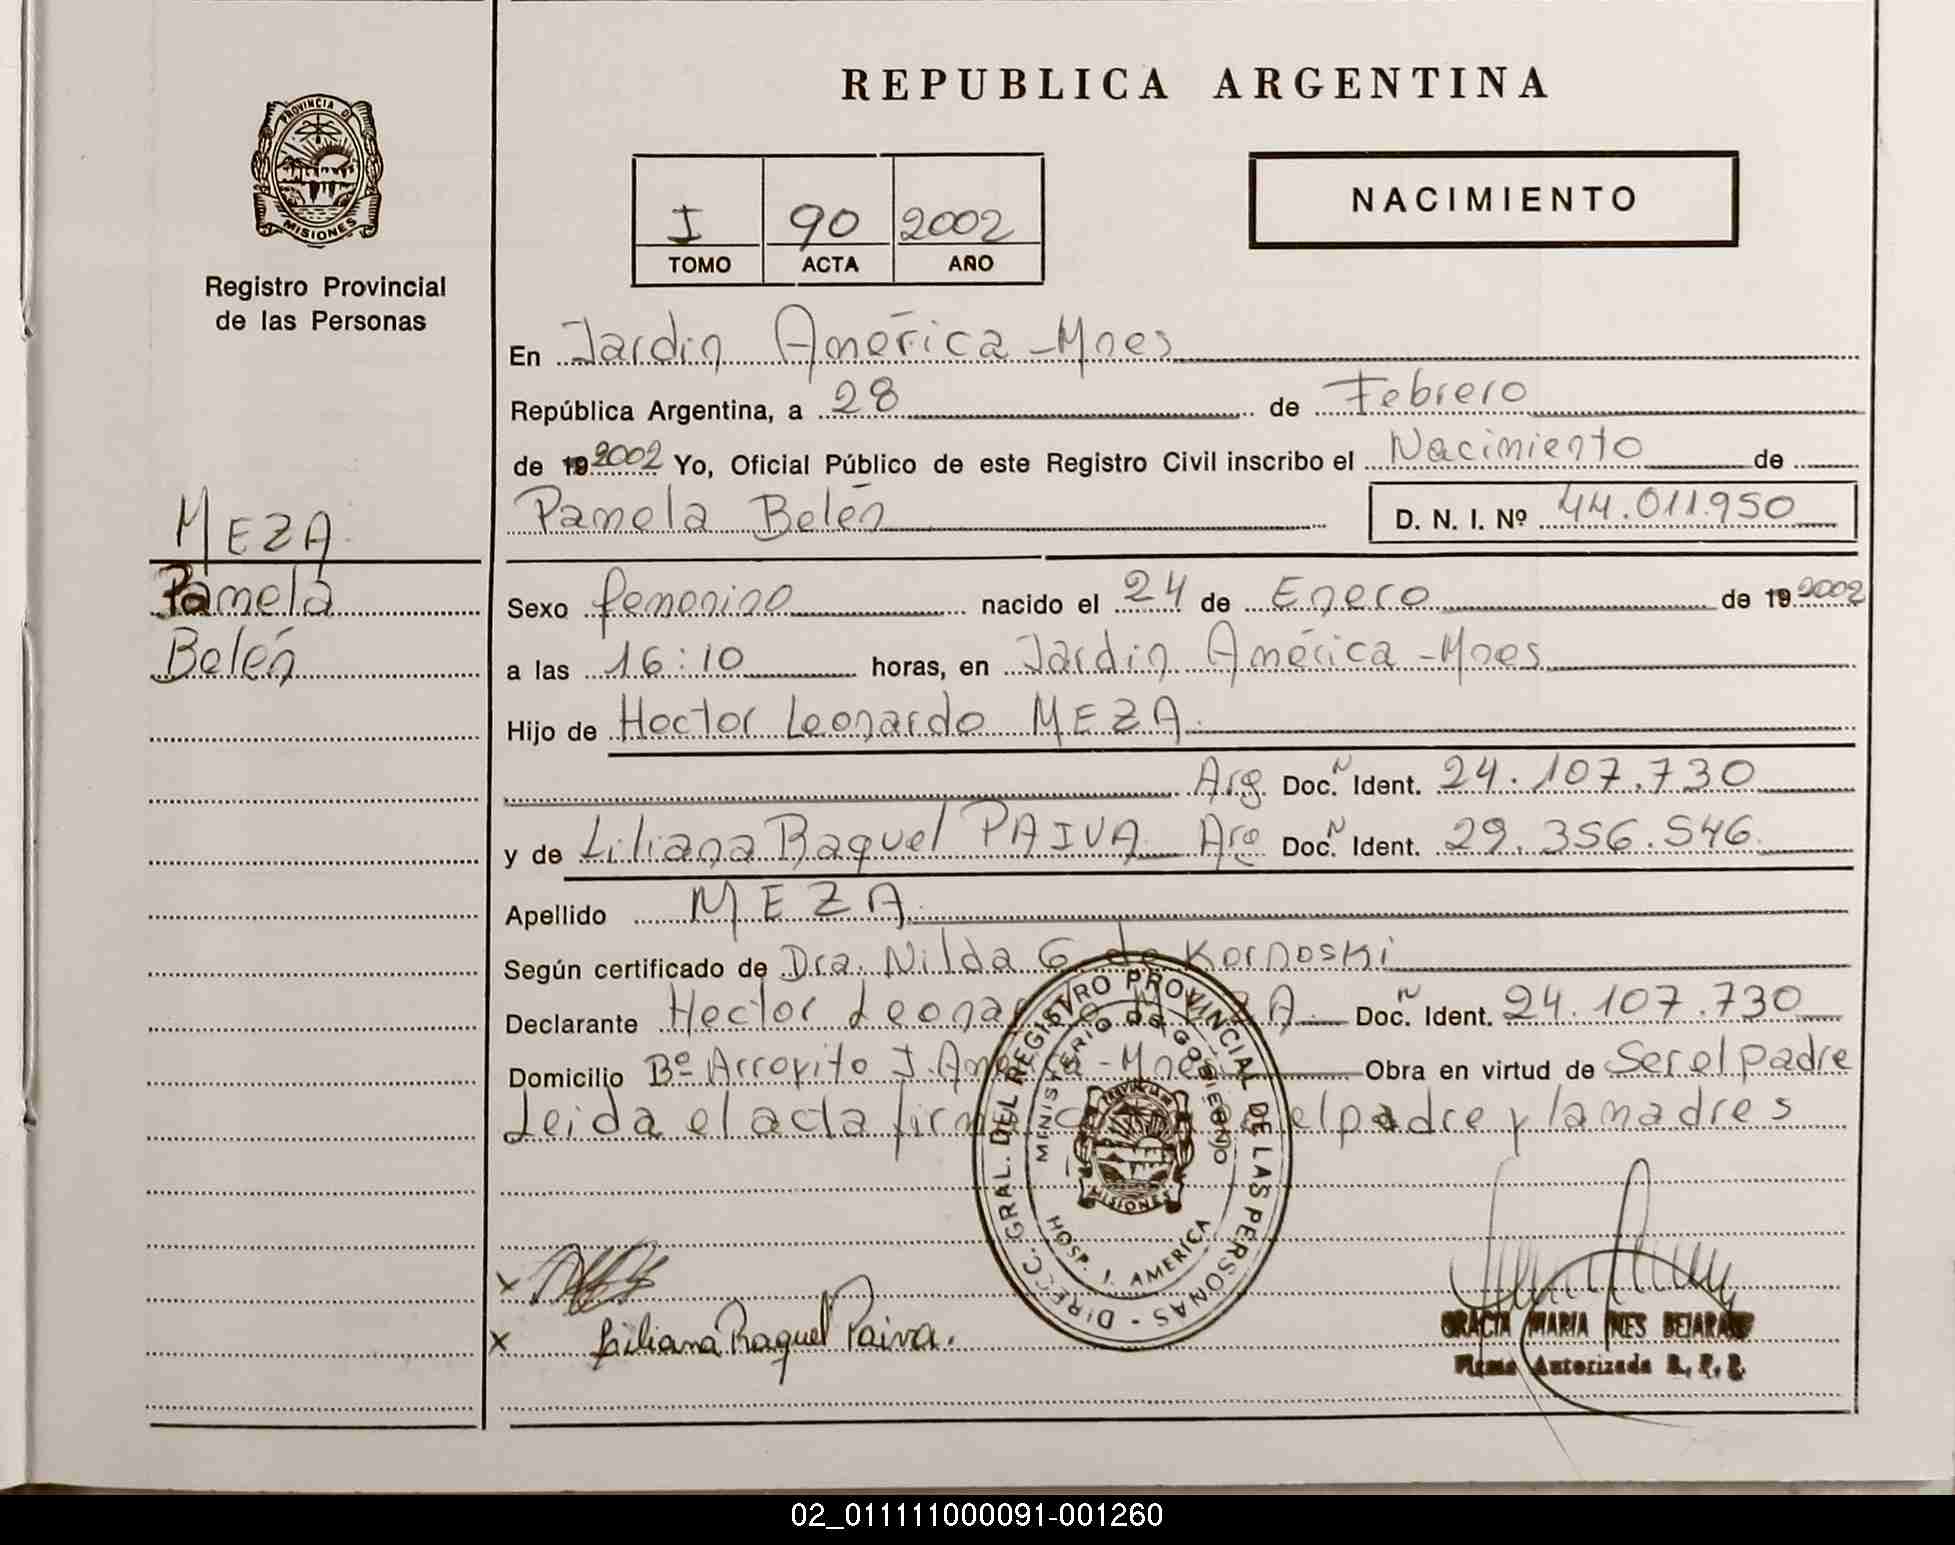 REPUBLICA ARGENTINA
PROVINCIA DE
MISIONES
Registro Provincial
de las Personas
I 90 2002
TOMO ACTA AÑO
NACIMIENTO
En Jardin América - Mnes
República Argentina, a 28 de Febrero
de 19 2002 Yo, Oficial Público de este Registro Civil inscribo el Nacimiento de
Pamela Belén D. N. I. Nº 44.011.950
MEZA
Pamela
Belén
Sexo femenino nacido el 24 de Enero de 19 2002
a las 16:10 horas, en Jardin América - Mnes
Hijo de Hector Leonardo MEZA
Arg Doc. N Ident. 24.107.730
y de Liliana Raquel PAIVA Arg Doc. N Ident. 29.356.546
Apellido MEZA
Según certificado de Dra. Nilda G de Kornoski
Declarante Hector Leona A Doc. N Ident. 24.107.730
Domicilio Bº Arroyito J. América - Mnes Obra en virtud de Ser el padre
Leida el acta el padre y la madre s
DIRECC. GRAL. DEL REGISTRO PROVINCIAL DE LAS PERSONAS -
MINISTERIO DE GOBIERNO
MISIONES
HOSP. J. AMERICA
x
x Liliana Raquel Paiva.
GRACIA MARIA INES BEJARANO
Firma Autorizada R. P. P.
02_011111000091-001260